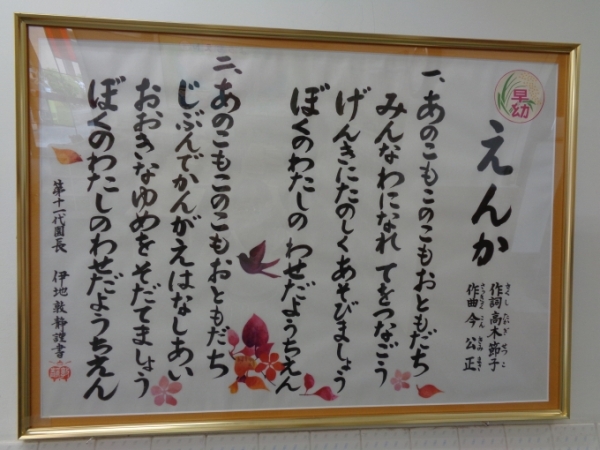 早幼
えんか
作詞 高木節子
さくし たかぎ せつこ
作曲 今 公正
さっきょく こん きみまさ
一、あのこもこのこもおともだち
みんなわになれ てをつなごう
げんきにたのしくあそびましょう
ぼくのわたしの わせだようちえん
二、あのこもこのこもおともだち
じぶんでかんがえはなしあい
おおきなゆめをそだてましょう
ぼくのわたしのわせだようちえん
第十一代園長 伊地敦静謹書